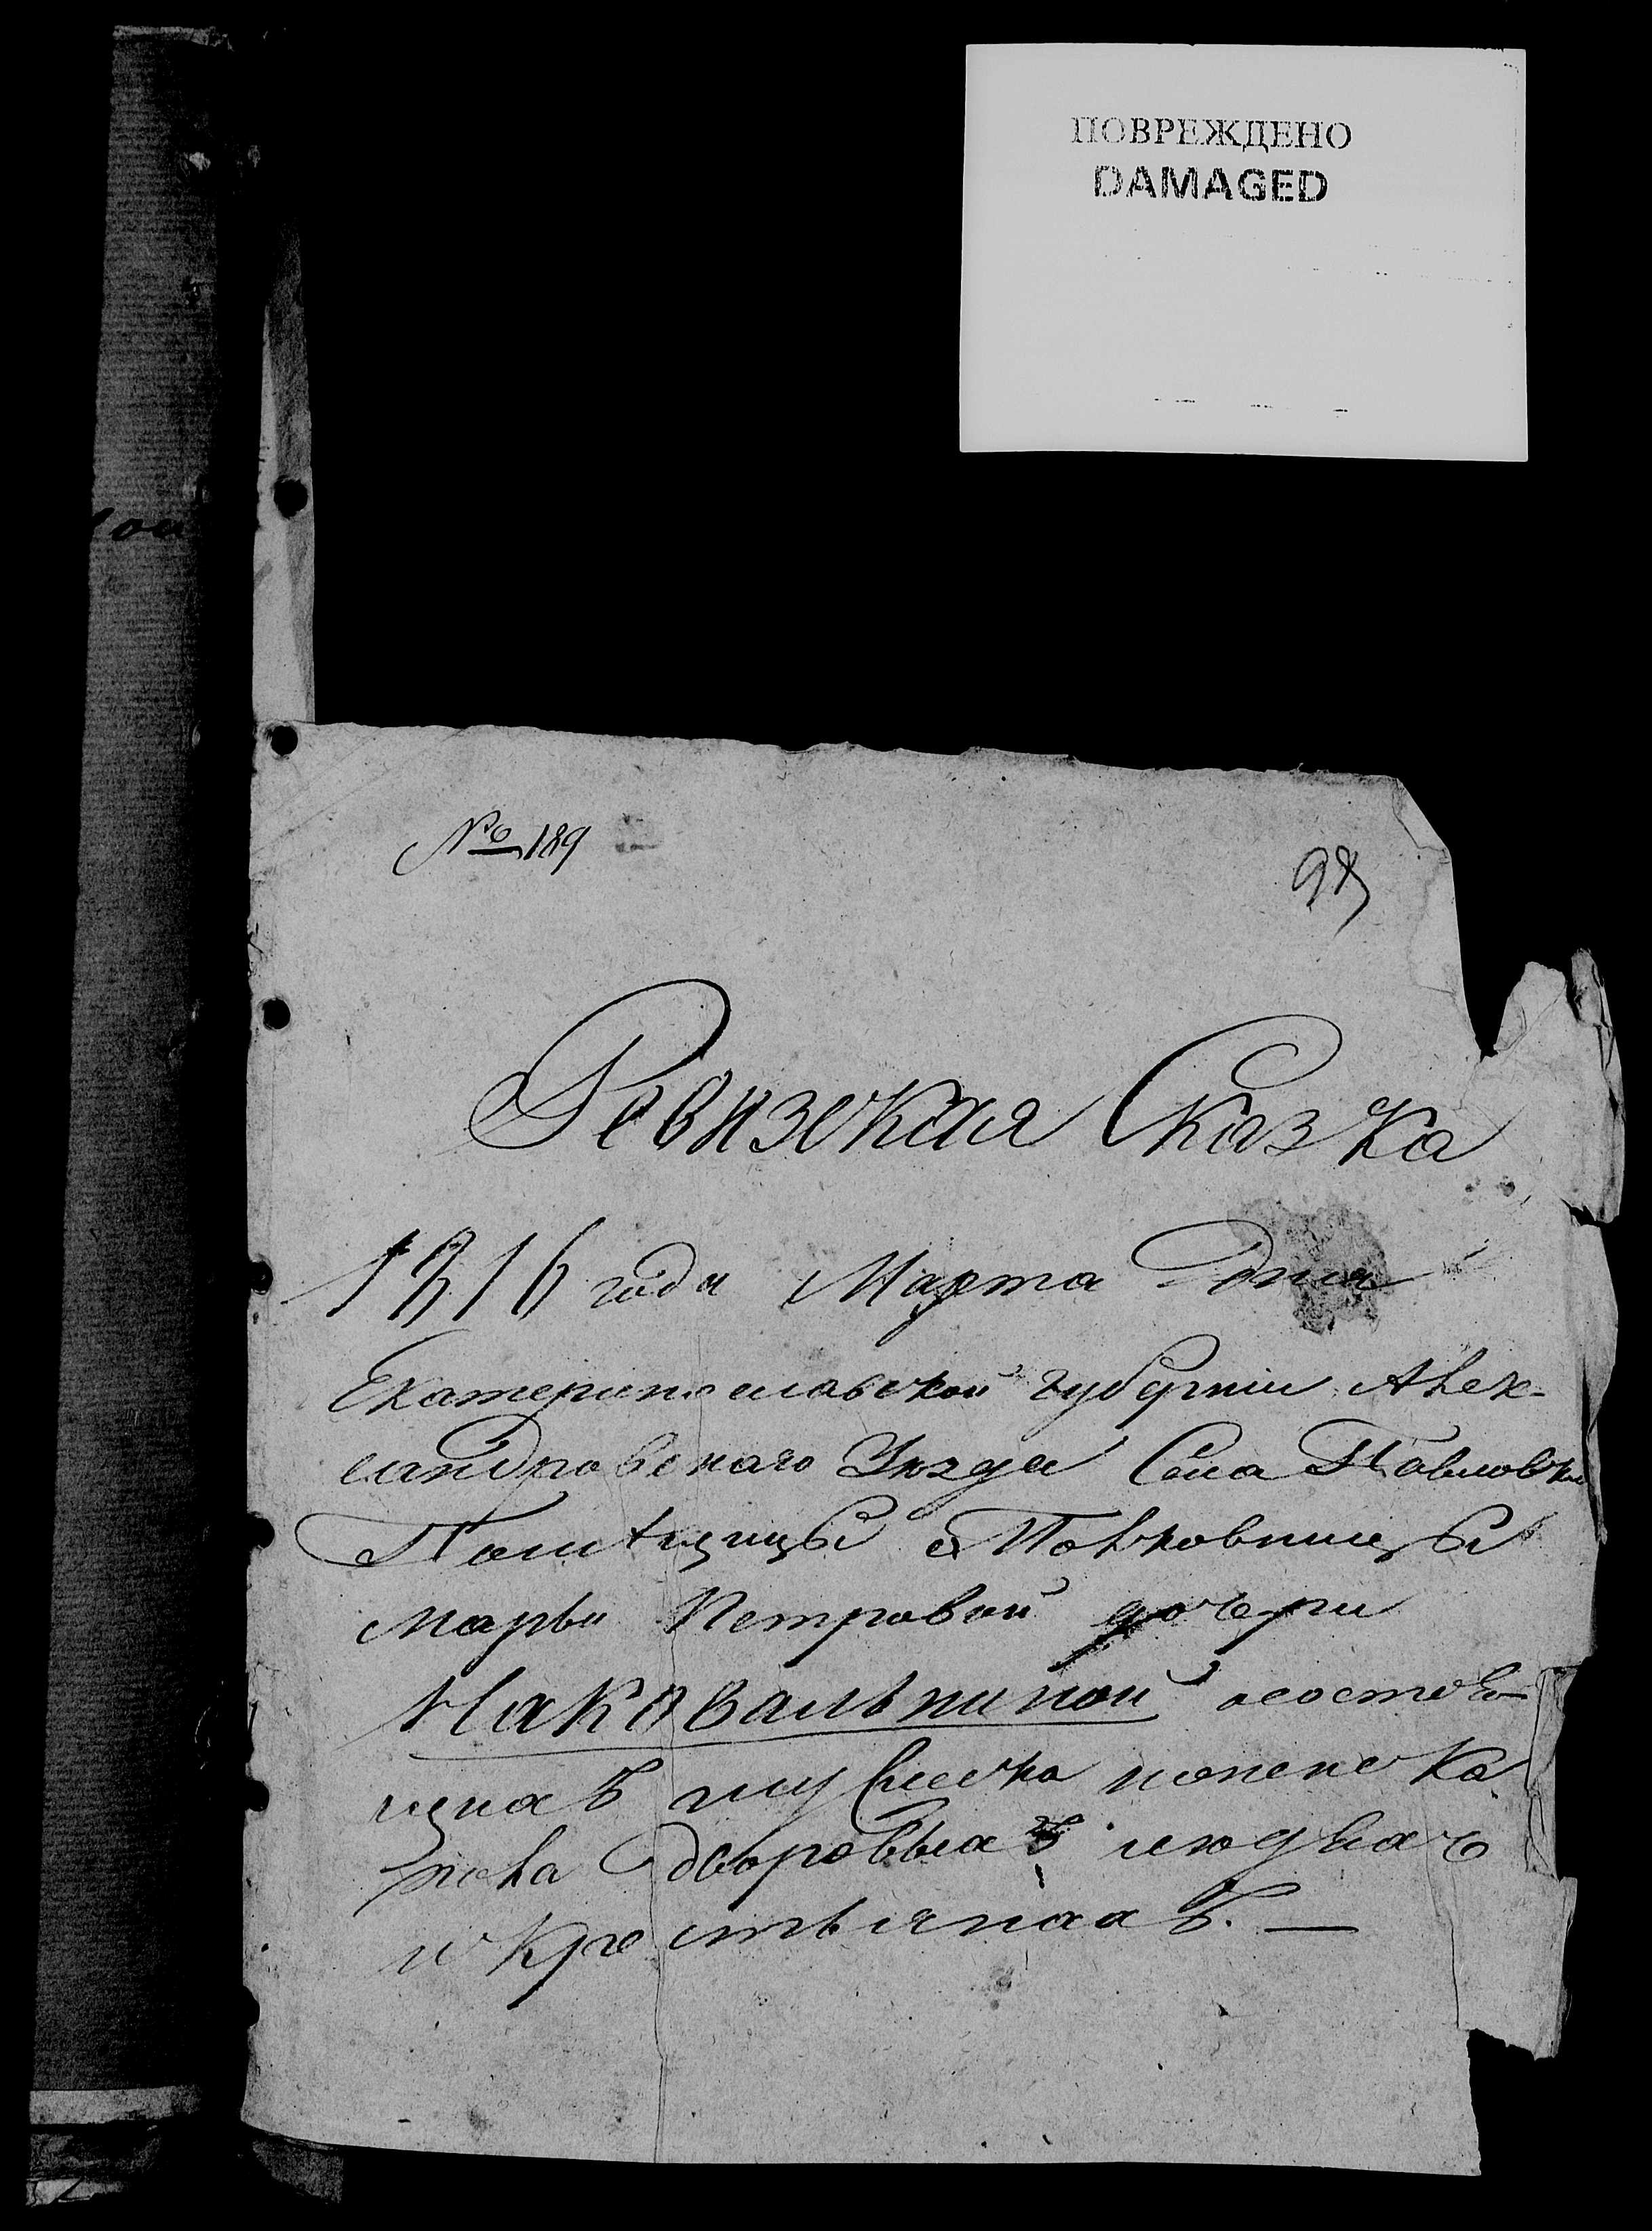 ПОВРЕЖДЕНО
DAMAGED
№ 189
98
Ревизская Сказка
1816 года Марта дня
Екатеринославской губернии Алек-
сандровскаго Уезда Села Павловки
Помѣщицы Полковницы
Марьи Петровой дочери
Наковальниной осостоя-
щихъ мужеска ка
пола дворовыхъ людяхъ
и крестьянахъ. —